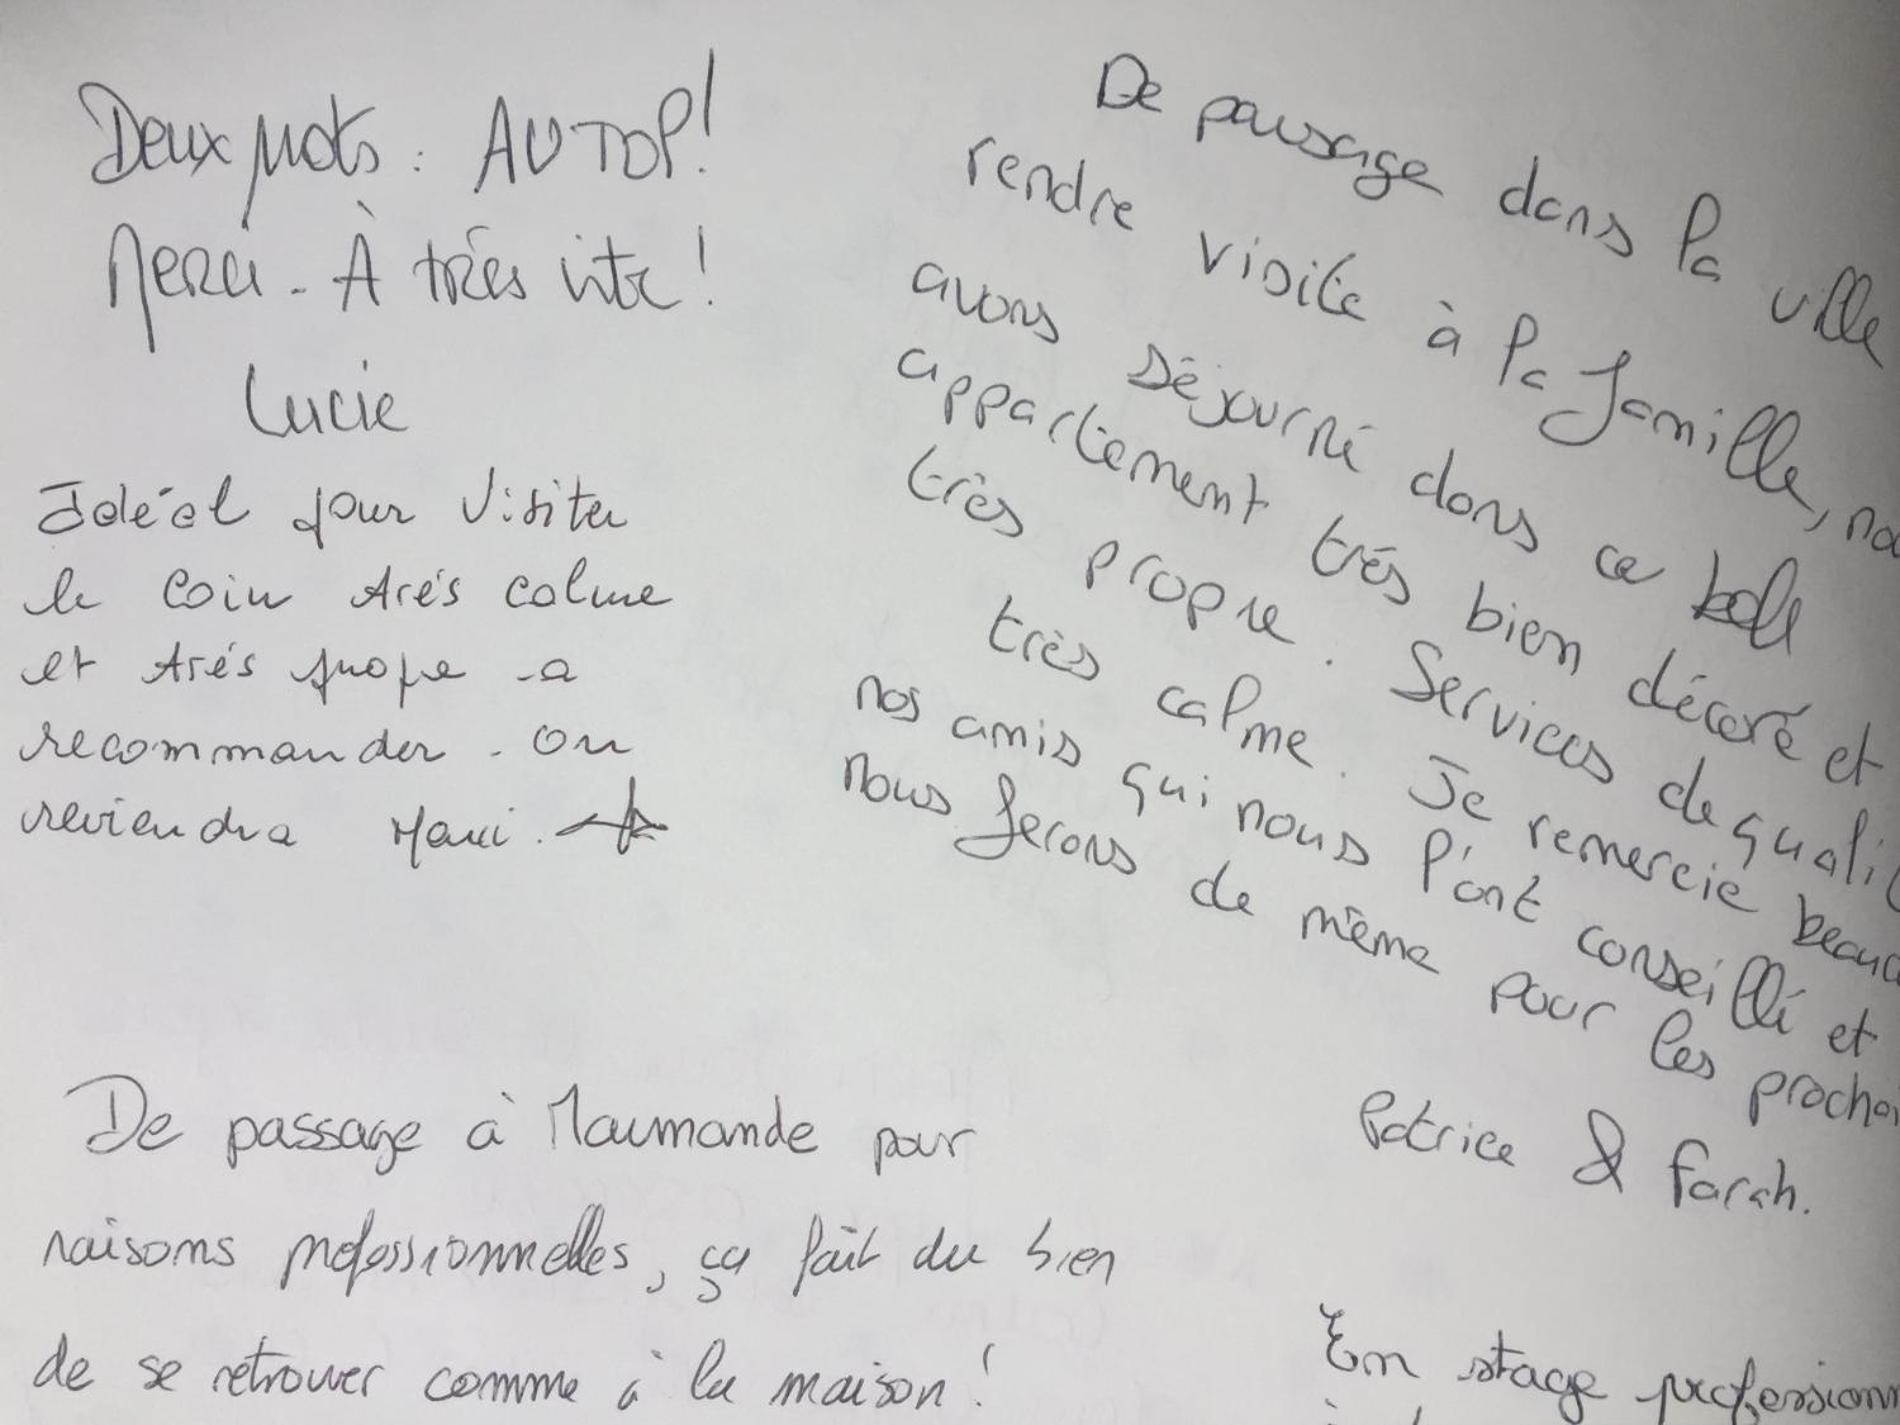 Deux mots : AU TOP!
Merci - À très vite !
Lucie
Idéal pour visiter
le coin très calme
et très propre - a
recommander - on
reviendra Merci.
De passage à Marmande pour
raisons professionnelles, ça fait du bien
de se retrouver comme à la maison !
De passage dans la ville
rendre visite à la famille, no
avons séjourné dans ce bel
appartement très bien décoré et
très propre. Services de quali
très calme. Je remercie beauc
nos amis qui nous l'ont conseillé et
nous ferons de même pour les prochai
Patrice & Farah.
En stage profession